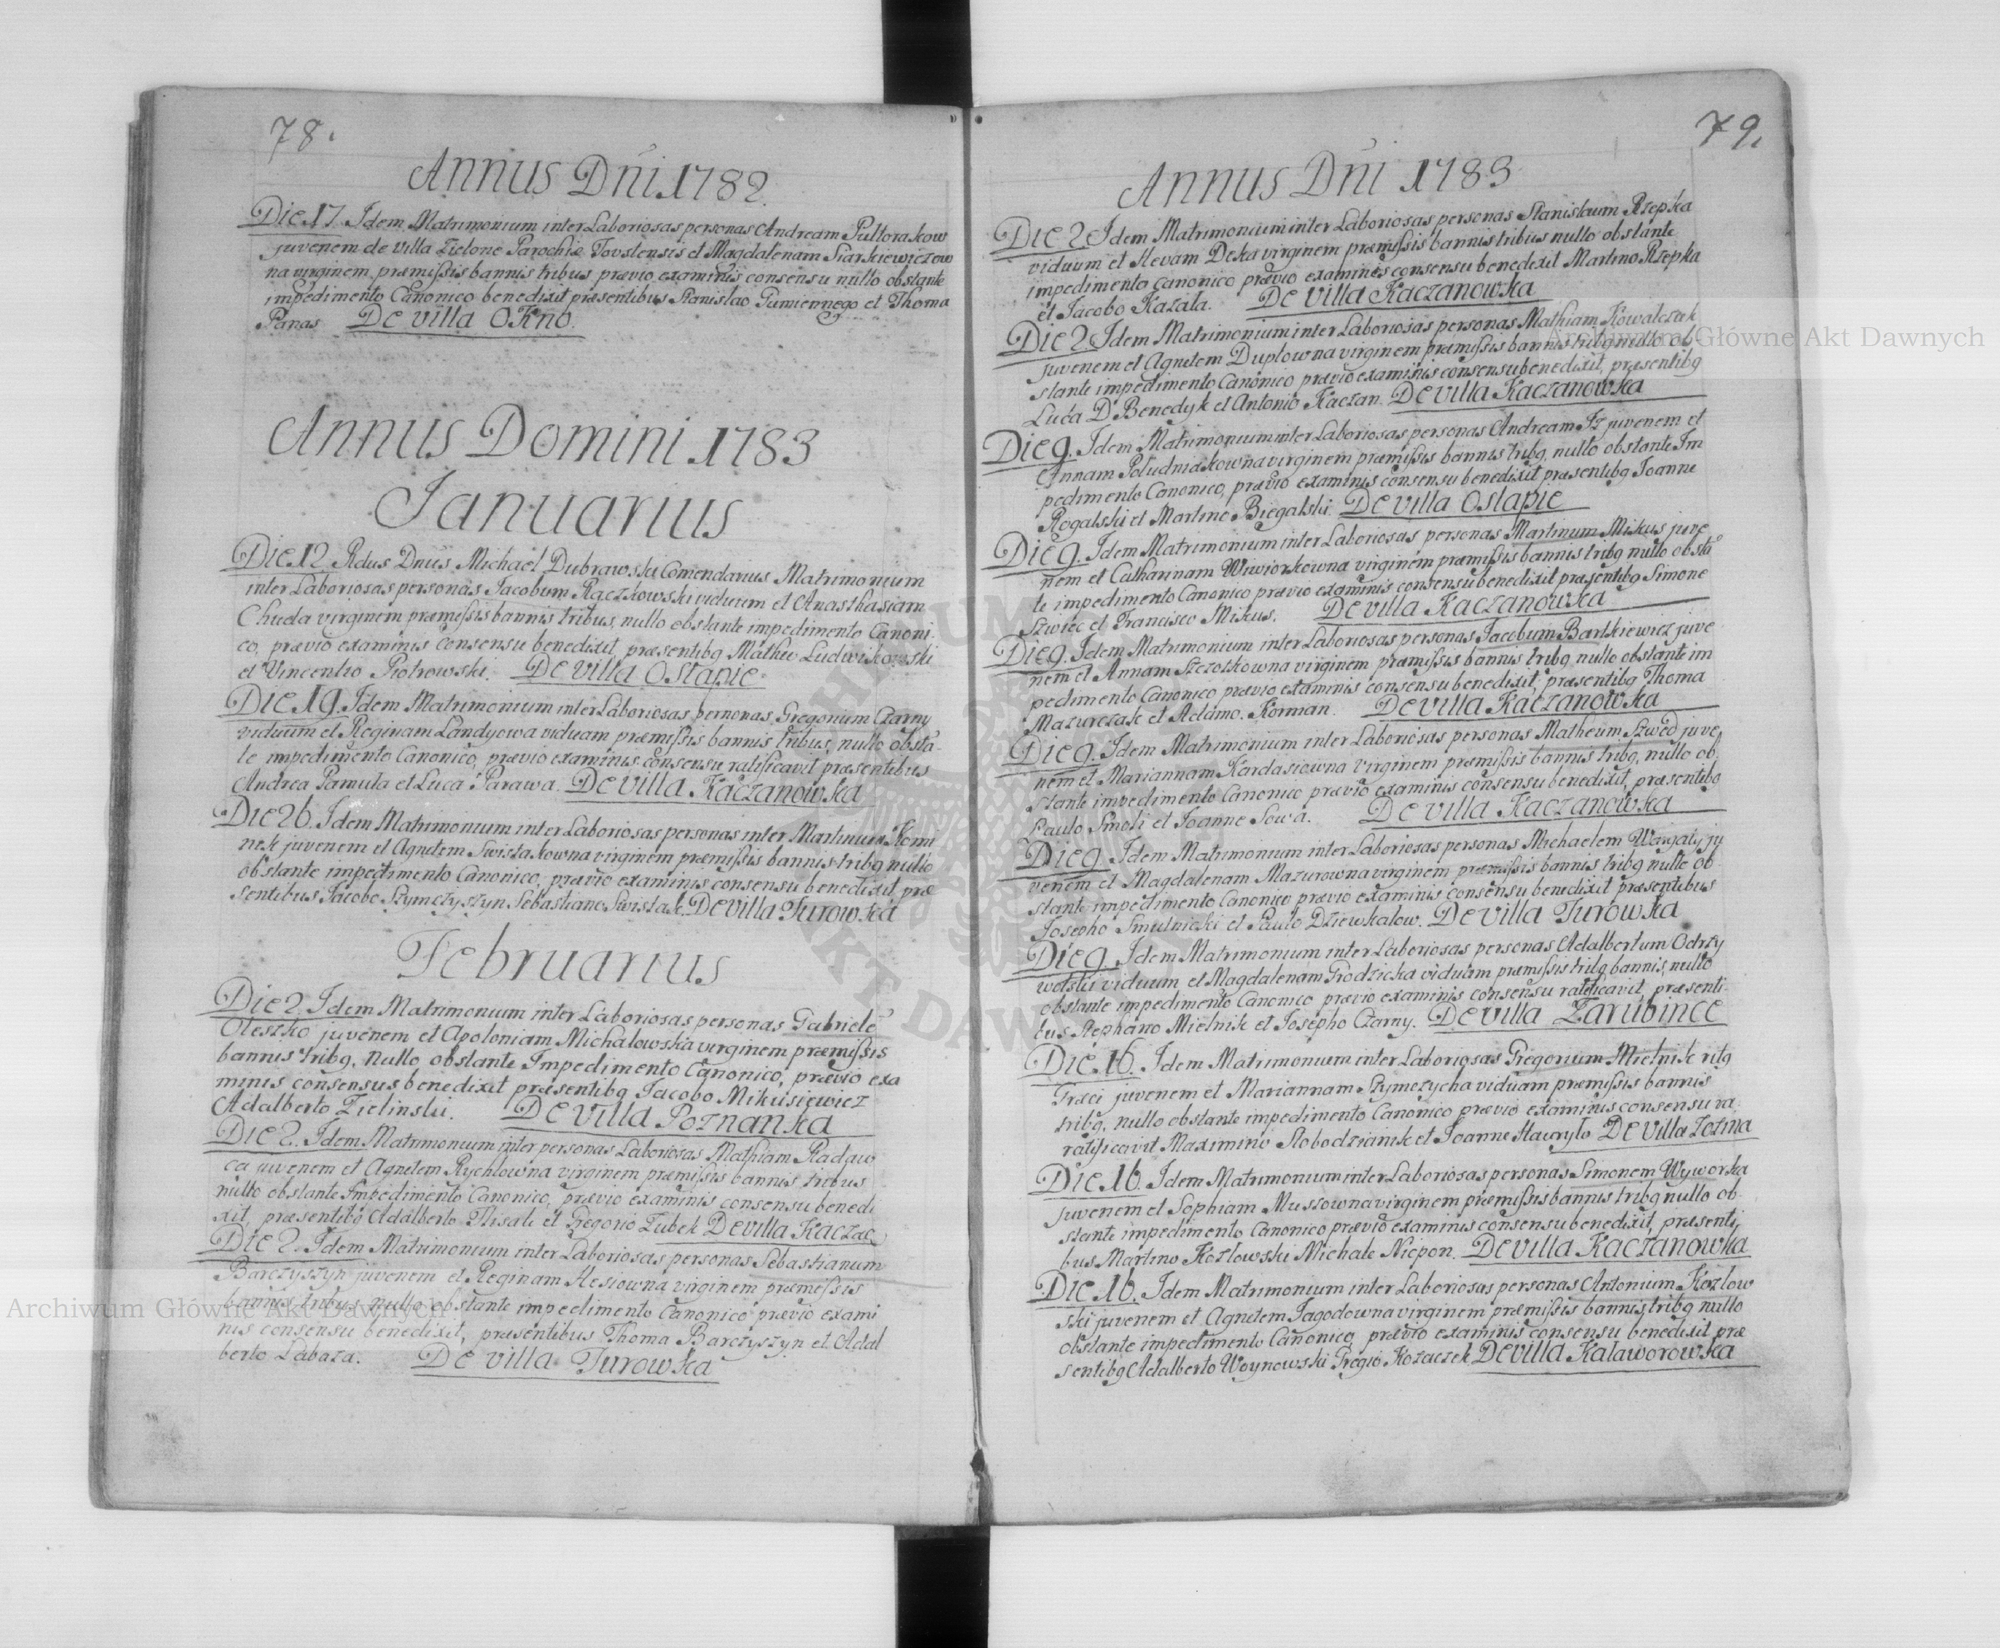 78.
Annus Dni 1782.
Die 17. Idem Matrimonium inter Laboriosas personas Andream Pultorakow
juvenem de villa Zielone Parochiæ Tovstensis et Magdalenam Siarkiewiczow
na virginem, præmissis bannis tribus prævio examinis consensu nullo obstante
impedimento Canonico benedixit præsentibus Stanislao Gumiennego et Thoma
Panas De villa Okno.
Annus Domini 1783
Januarius
Die 12. Rdus Dnus Michael Dubrawski Comendarius Matrimonium
inter Laboriosas personas Jacobum Raczkowski viduum et Anasthasiam
Chuda virginem præmissis bannis tribus, nullo obstante impedimento Canoni
co, prævio examinis consensu benedixit, præsentibq Matheo Ludwikowski
et Vincentio Piotrowski. De villa Ostapie
Die 19. Idem Matrimonium inter Laboriosas personas Gregorium Czarny
viduum et Reginam Landyowa viduam præmissis bannis tribus, nullo obsta-
te impedimento Canonico, prævio examinis consensu ratificavit præsentibus
Andrea Pamula et Luca Parawa. De villa Kaczanowka
Die 26. Idem Matrimonium inter Laboriosas personas inter Martinum Komi
nek juvenem et Agnetem Swistakowna virginem præmissis bannis tribq nullo
obstante impedimento Canonico, prævio examinis consensu benedixit præ
sentibus Jacobo Szymczyszyn Sebastiano Swistak De villa Turowka
Februarius
Die 2. Idem Matrimonium inter Laboriosas personas Gabriele
Oleszko juvenem et Apoloniam Michalowska virginem præmissis
bannis tribq, nullo obstante Impedimento Canonico, prævio exa
minis consensus benedixit præsentibq Jacobo Mikusiewicz
Adalberto Zielinski. De villa Poznanka
Die 2. Idem Matrimonium inter personas Laboriosas Mathiam Radaw
ca juvenem et Agnetem Rychlowna virginem præmissis bannis tribus
nullo obstante Impedimento Canonico, prævio examinis consensu benedi
xit, præsentibq Adalberto et Gregorio Zubek De villa Kaczac
Die 2. Idem Matrimonium inter Laboriosas personas Sebastianum
Barczyszyn juvenem et Reginam Hesiowna virginem præmessis
bannis tribus nullo obstante impedimento Canonico prævio exami
nis consensu benedixit, præsentibus Thoma Barczyszyn et Adal
berto Labaza. De villa Turowka
79.
Annus Dni 1783
Die 2. Idem Matrimonium inter Laboriosas personas Stanislaum Rzepka
viduum et Hevam Deka virginem præmissis bannis tribus nullo obstante
impedimento canonico prævio examines consensu benedixit Martino Rzepka
et Jacobo Kazala. De villa Kaczanowka
Die 2. Idem Matrimonium inter Laboriosas personas Mathiam Kowalczuk
juvenem et Agnetem Duplowna virginem præmissis bannis tribq nullo ob-
stante impedimento Canonico prævio examinis consensu benedixit, præsentibq
Luca D Benedyk et Antonio Kaczan. De villa Kaczanowka
Die 9. Idem Matrimonium inter Laboriosas personas Andream Iz juvenem et
Annam Poludniakowna virginem præmissis bannis tribq, nullo obstante Im
pedimento Canonico, prævio examinis consensu benedixit præsentibq Joanne
Rogalski et Martino Biegalski De villa Ostapie
Die 9. Idem Matrimonium inter Laboriosas personas Martinum Mikus juve
nem et Catharinam Wiwiorkowna virginem præmissis bannis tribq nullo obsta
te impedimento Canonico prævio examinis consensu benedixit præsentibq Simone
Szwiec et Francisco Mikus. De villa Kaczanowka
Die 9. Idem Matrimonium inter Laboriosas personas Jacobum Bartkiewicz juve
nem et Annam Szczotkowna virginem præmissis bannis tribq, nullo obstante im
pedimento Canonico prævio examinis consensu benedixit, præsentibq Thoma
Mazurczak et Adamo Korman. De villa Kaczanowka
Die 9. Idem Matrimonium inter Laboriosas personas Matheum Szwed juve
nem et Mariannam Kardasiewna virginem præmissis bannis tribq, nullo ob
stante impedimento Canonico prævio examinis consensu benedixit, præsentibq
Paulo Smoli et Joanne Sowa. De villa Kaczanowka
Die 9 Idem Matrimonium inter Laboriosas personas Michaelem ju
venem et Magdalenam Mazurowna virginem præmissis bannis tribq nullo ob
stante impedimento Canonico prævio examinis consensu benedixit præsentibus
Josepho Smulnicki et Paulo Dziewkalow. De villa Turowka
Die 9. Idem Matrimonium inter Laboriosas personas Adalbertum Odrzy
wolski viduum et Magdalenam Grodzicka viduam præmissis tribq bannis, nullo
obstante impedimento Canonico prævio examinis consensu ratificavit, præsenti-
bus Stephano Mielnik et Josepho Czarny. De villa Zarubince
Die 16. Idem Matrimonium inter Laboriosas Gregorium Mielnik ritq
Græci juvenem et Mariannam Szymczycha viduam præmissis bannis
tribq, nullo obstante impedimento Canonico prævio examinis consensu ra
ratificavit Maximino Slobodzianik et Joanne Hawrylo De villa Lozina
Die 16. Idem Matrimonium inter Laboriosas personas Simonem Wyworka
juvenem et Sophiam Mussowna virginem præmissis bannis tribq nullo ob-
stante impedimento Canonico prævio examinis consensu benedixit, præsenti
bus Martino Kozlowski Michale Niepon. De villa Kaczanowka
Die 16. Idem Matrimonium inter Laboriosas personas Antonium Kozlow
ski juvenem et Agnetem Jagodowna virginem præmissis bannis tribq nullo
obstante impedimento Canonico, prævio examinis consensu benedixit præ
sentibq Adalberto Woynowski Gregio Kozaczek De villa Kalaworowka
Archiwum Główne Akt Dawnych
Archiwum Główne Akt Dawnych